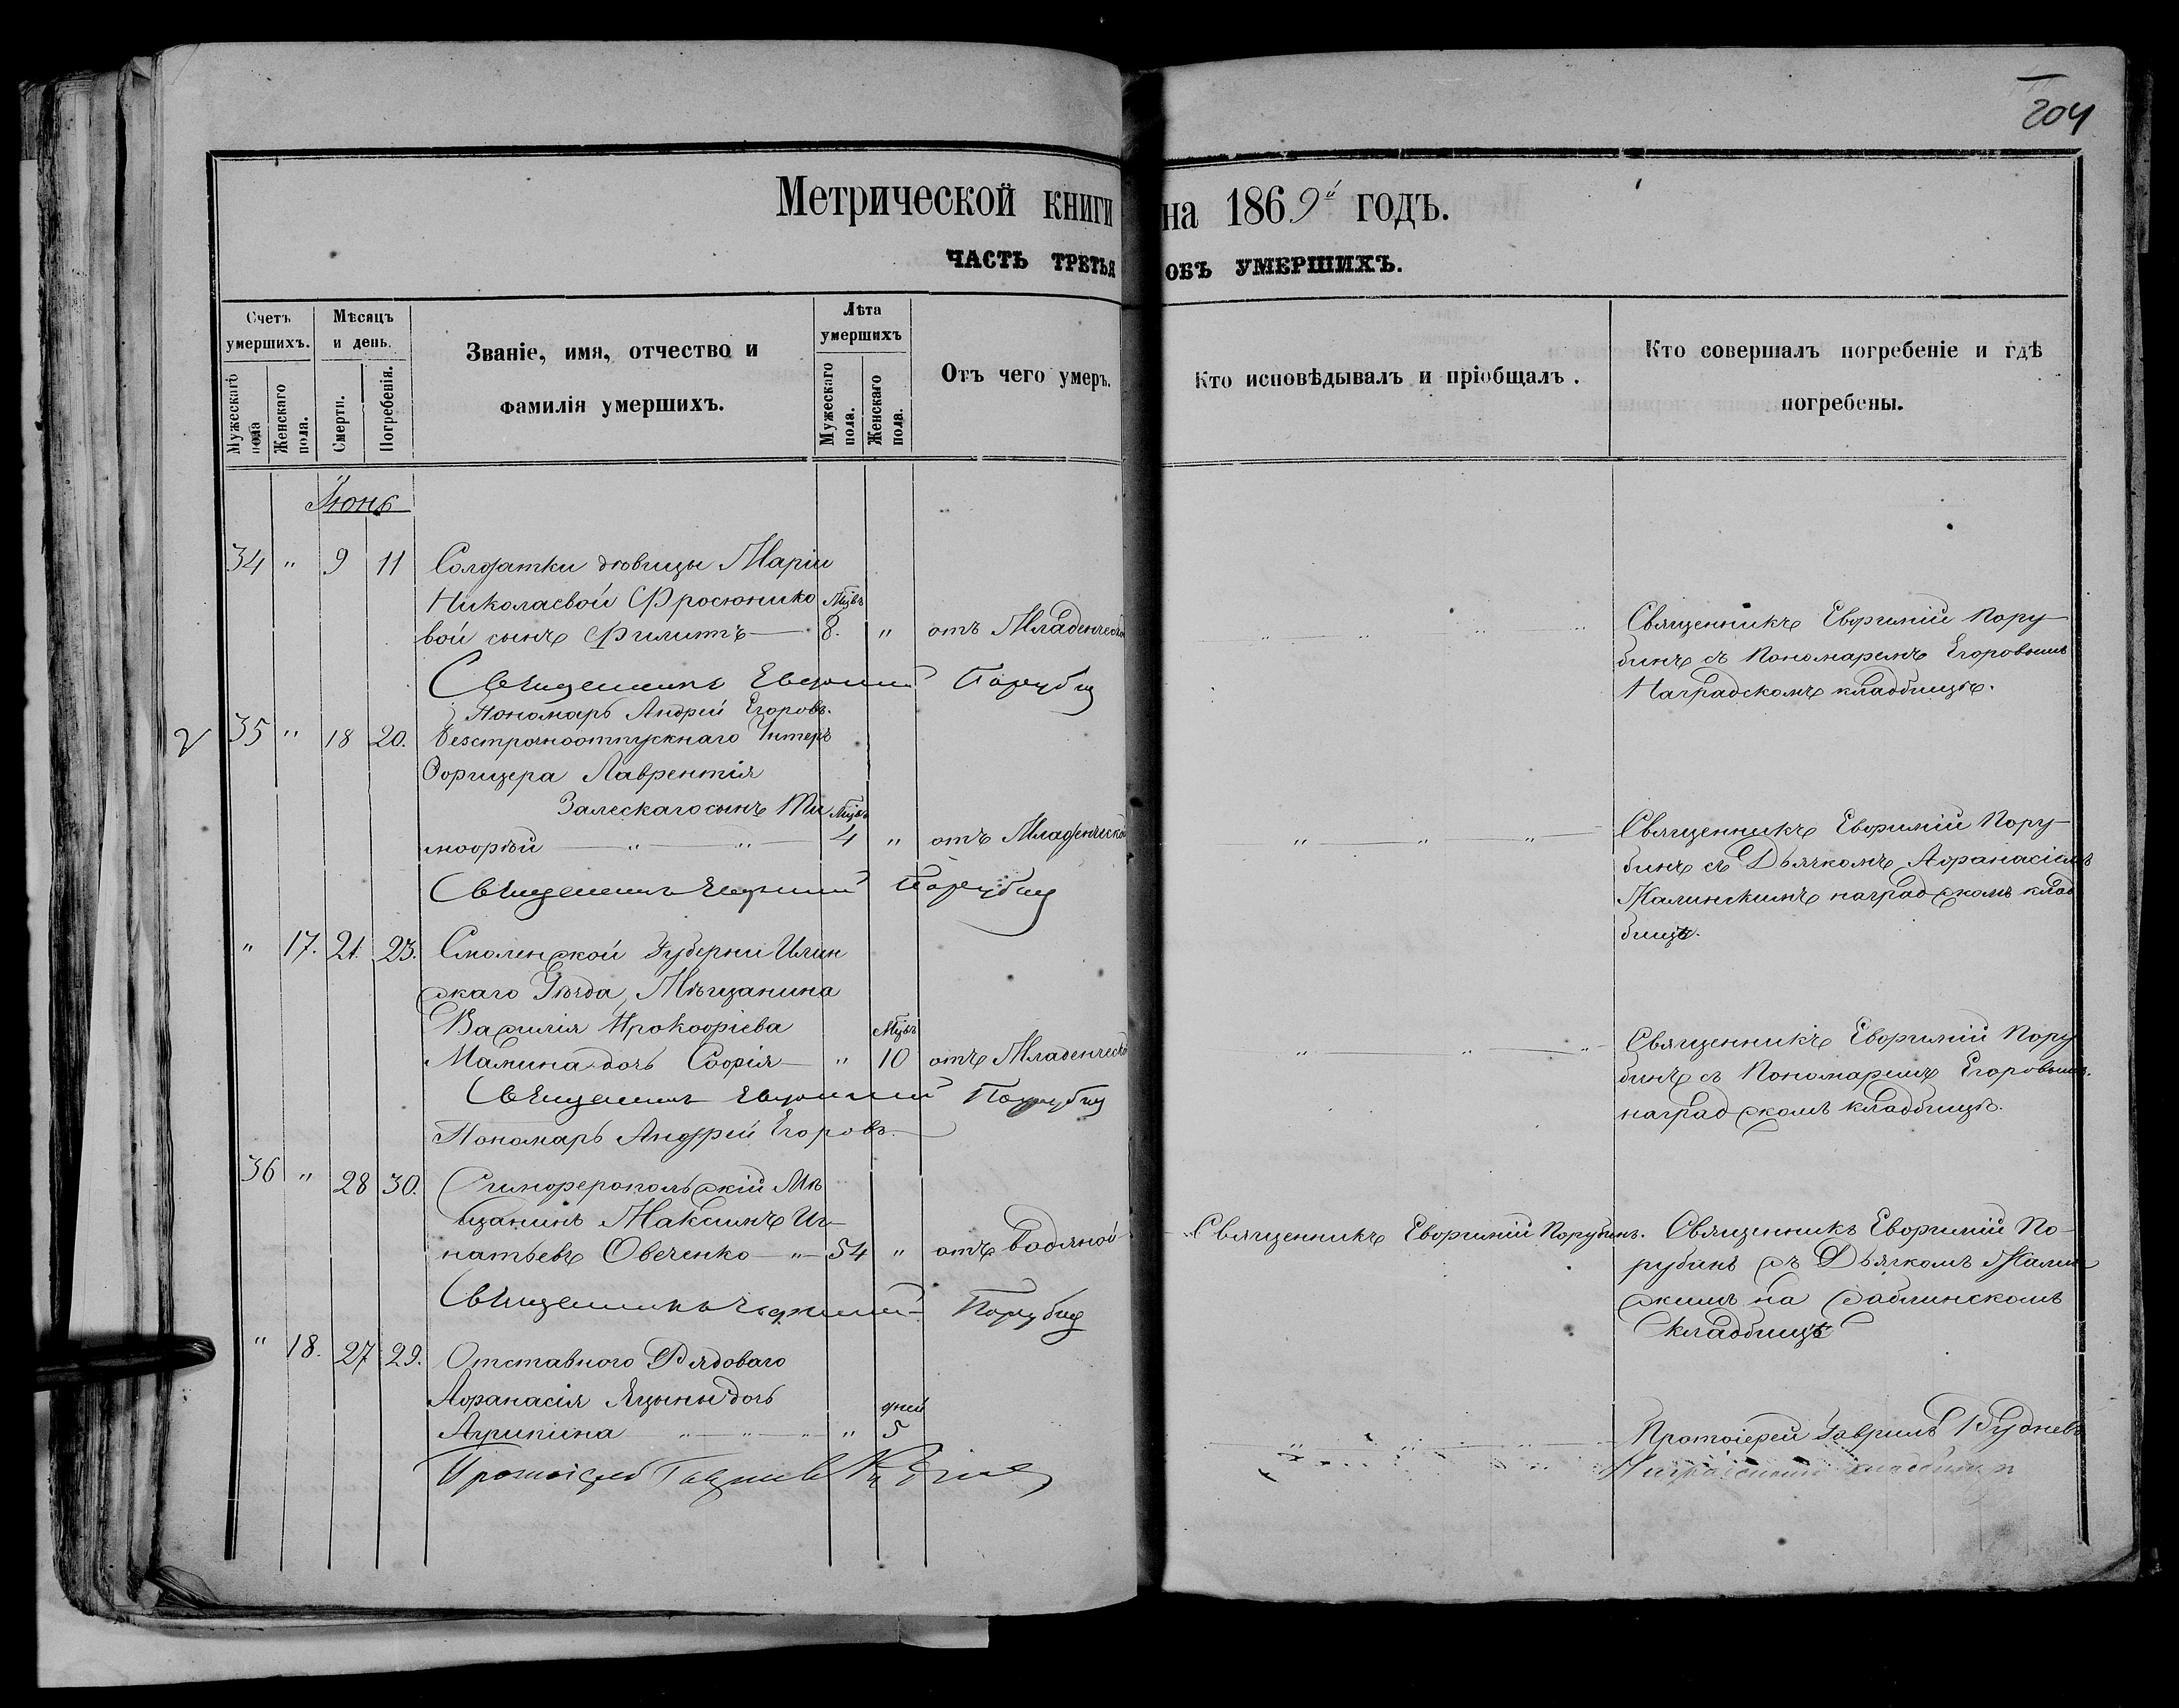 204
Метрической книги на 1869й годъ.
ЧАСТЬ ТРЕТЬЯ ОБЪ УМЕРШИХЪ.
Счетъ умершихъ.
Мужескаго пола
Женскаго пола.
Мѣсяцъ и день.
Смерти.
Погребенія.
Званіе, имя, отчество и
фамилія умершихъ.
Лѣта умершихъ
Мужескаго пола.
Женскаго пола.
Отъ чего умеръ.
Кто исповѣдывалъ и пріобщалъ.
Кто совершалъ погребеніе и гдѣ
погребены.
Іюнь
34 " 9 11 Солдатки дѣвицы Маріи
Николаевой Фросюнико Мцвъ
вой сынъ Филипъ — 8. " отъ Младенческой
Священникъ Евфимій Порубин
Пономарь Андрей Егоровъ.
Священникъ Евфимій Пору-
бинъ съ Пономаремъ Егоровымъ
Наградскомъ кладбищѣ.
35 " 18 20. безсрочноотпускнаго Унтеръ
Офицера Лаврентія
Залескаго сынъ Ти Мцвъ
мофѣй — " — " — 4 " отъ Младенческой
Священникъ Евфимій Порубин
Священникъ Евфимій Пору-
бинъ съ Дьячкомъ Афанасіемъ
Калинскимъ наградскомъ клад
бищѣ.
" 17. 21. 23. Смоленской Губерни Илин
скаго Уѣзда, Мѣщанина
Василія Прокофіева Мцвъ
Мамина дочь Софія — " 10 отъ Младенческой
Священникъ Евфимій Порубин
Пономарь Андрей Егоровъ
Священникъ Евфимій Пору
бинъ съ Пономаремъ Егоровымъ.
наградскомъ кладбищѣ.
36 " 28 30. Симферопольскій Мѣ
щанинъ Максимъ Иг-
натьевъ Овеченко — " — 54 " отъ Водяной
Священникъ Евфимій Порубин
Священникъ Евфимій Порубинъ.
Священникъ Евфимій По-
рубинъ съ Дьячкомъ Калин
скимъ на Саблинскомъ
кладбищѣ
" 18. 27 29. Отставного Рядоваго
Афанасія Яцыны дочь дней
Агрипина — " — " — " " 5
Протоіерей Гавриилъ
Протоіерей Гаврилъ Рудневъ